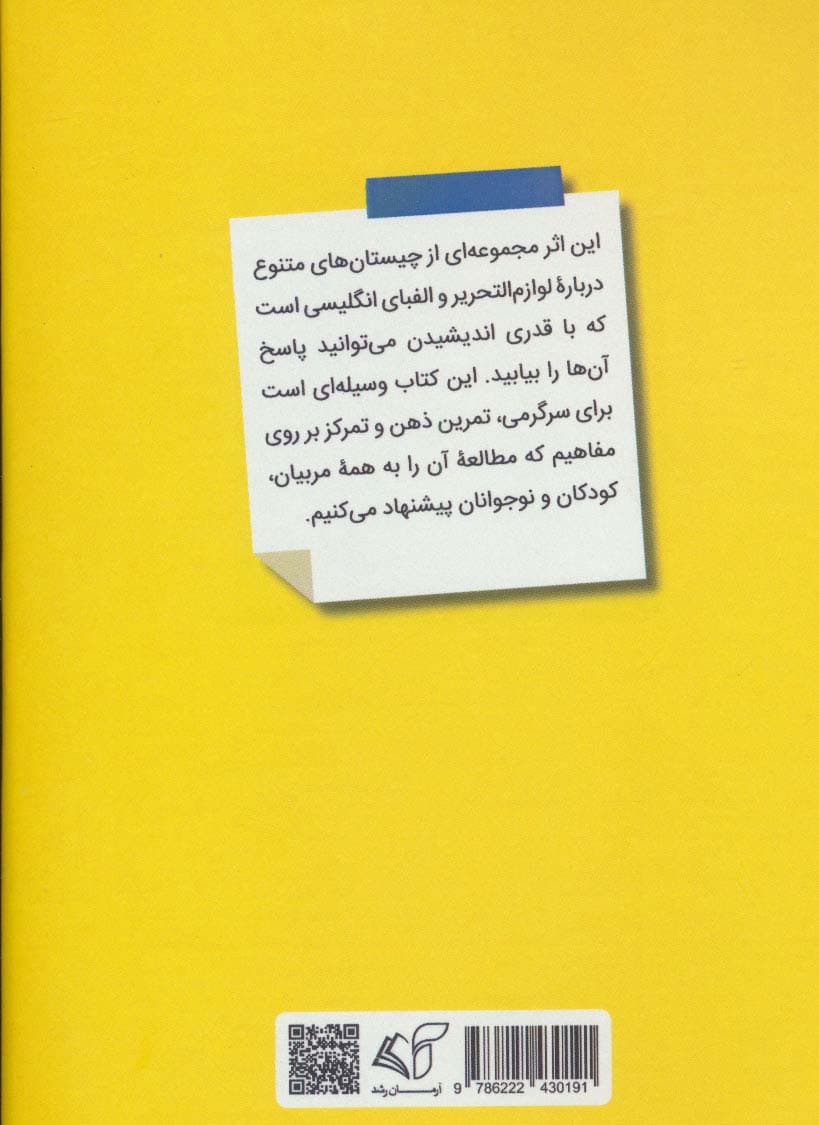 این اثر مجموعه‌ای از چیستان‌های متنوع
دربارهٔ لوازم‌التحریر و الفبای انگلیسی است
که با قدری اندیشیدن می‌توانید پاسخ
آن‌ها را بیابید. این کتاب وسیله‌ای است
برای سرگرمی، تمرین ذهن و تمرکز بر روی
مفاهیم که مطالعهٔ آن را به همهٔ مربیان،
کودکان و نوجوانان پیشنهاد می‌کنیم.
آرمان رشد
9 786222 430191